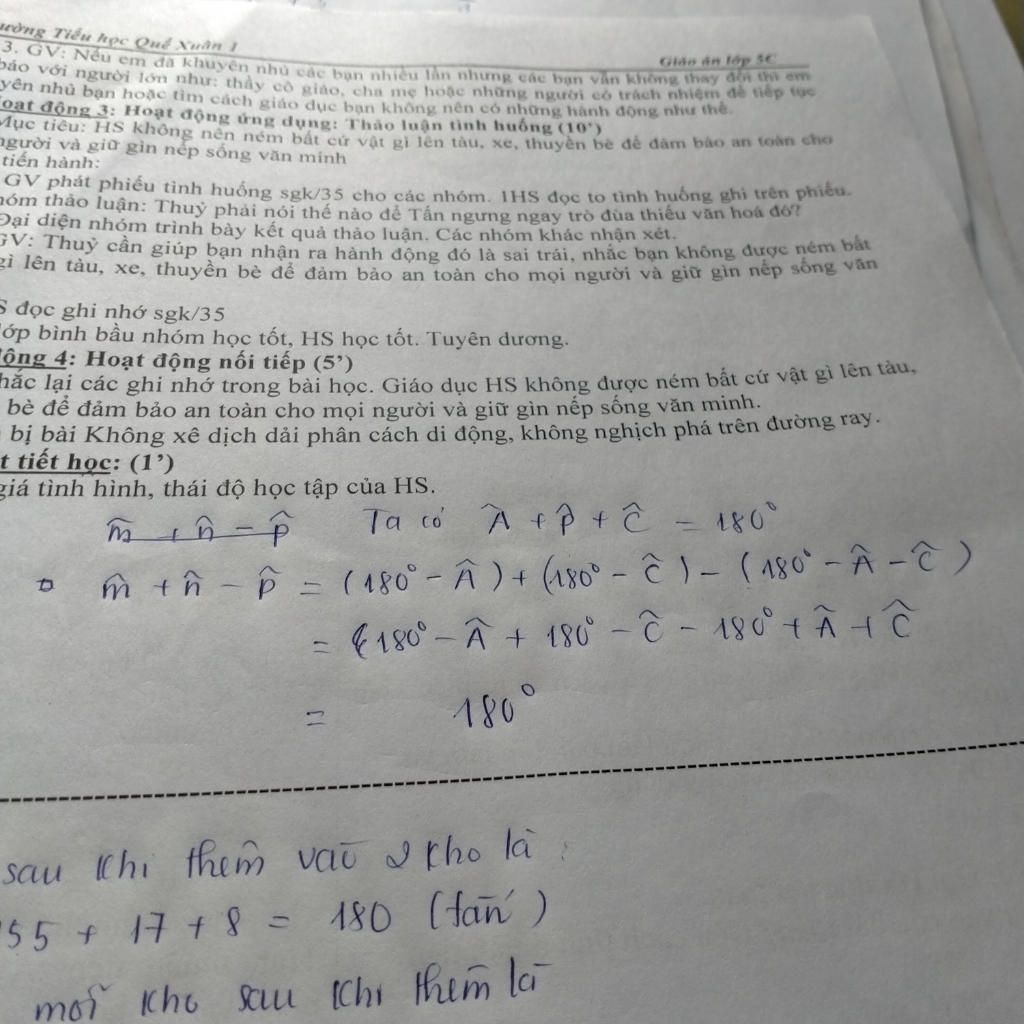 ường Tiểu học Quế Xuân 1
Giáo án lớp 5C
3. GV: Nếu em đã khuyên nhủ các bạn nhiều lần nhưng các bạn vẫn không thay đổi thì em
báo với người lớn như: thầy cô giáo, cha mẹ hoặc những người có trách nhiệm để tiếp tục
yên nhủ bạn hoặc tìm cách giáo dục bạn không nên có những hành động như thế.
oạt động 3: Hoạt động ứng dụng: Thảo luận tình huống (10’)
Mục tiêu: HS không nên ném bất cứ vật gì lên tàu, xe, thuyền bè để đảm bảo an toàn cho
người và giữ gìn nếp sống văn minh
tiến hành:
GV phát phiếu tình huống sgk/35 cho các nhóm. 1HS đọc to tình huống ghi trên phiếu.
hóm thảo luận: Thuỷ phải nói thế nào để Tấn ngưng ngay trò đùa thiếu văn hoá đó?
Đại diện nhóm trình bày kết quả thảo luận. Các nhóm khác nhận xét.
GV: Thuỷ cần giúp bạn nhận ra hành động đó là sai trái, nhắc bạn không được ném bất
gì lên tàu, xe, thuyền bè để đảm bảo an toàn cho mọi người và giữ gìn nếp sống văn
S đọc ghi nhớ sgk/35
lớp bình bầu nhóm học tốt, HS học tốt. Tuyên dương.
động 4: Hoạt động nối tiếp (5’)
hắc lại các ghi nhớ trong bài học. Giáo dục HS không được ném bất cứ vật gì lên tàu,
bè để đảm bảo an toàn cho mọi người và giữ gìn nếp sống văn minh.
bị bài Không xê dịch dải phân cách di động, không nghịch phá trên đường ray.
t tiết học: (1’)
giá tình hình, thái độ học tập của HS.
m̂ + n̂ - p̂ Ta có Â + p̂ + Ĉ = 180°
m̂ + n̂ - p̂ = (180° - Â) + (180° - Ĉ) - (180° - Â - Ĉ)
= 180° - Â + 180° - Ĉ - 180° + Â + Ĉ
= 180°
sau khi thêm vào 2 kho là :
55 + 17 + 8 = 180 (tấn)
mỗi kho sau khi thêm là